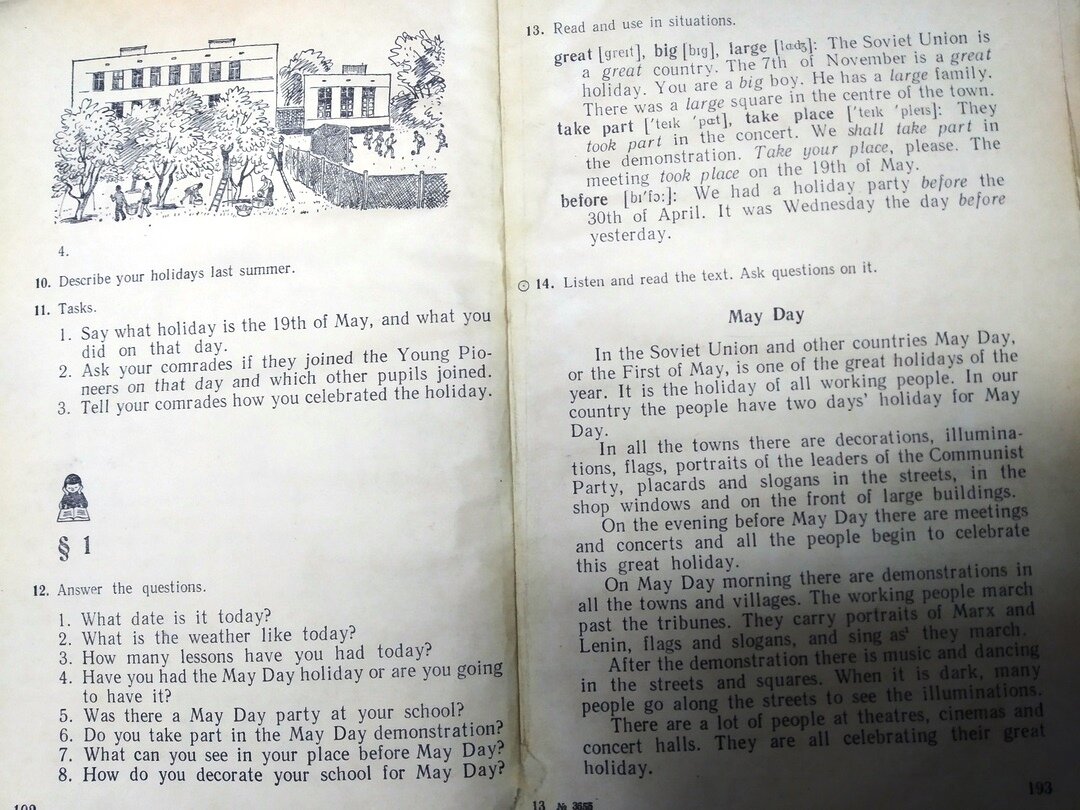 4.
10. Describe your holidays last summer.
11. Tasks.
1. Say what holiday is the 19th of May, and what you
did on that day.
2. Ask your comrades if they joined the Young Pio-
neers on that day and which other pupils joined.
3. Tell your comrades how you celebrated the holiday.
§ 1
12. Answer the questions.
1. What date is it today?
2. What is the weather like today?
3. How many lessons have you had today?
4. Have you had the May Day holiday or are you going
to have it?
5. Was there a May Day party at your school?
6. Do you take part in the May Day demonstration?
7. What can you see in your place before May Day?
8. How do you decorate your school for May Day?
13. Read and use in situations.
great [greɪt], big [bɪg], large [lɑːdʒ]: The Soviet Union is
a great country. The 7th of November is a great
holiday. You are a big boy. He has a large family.
There was a large square in the centre of the town.
take part ['teɪk 'pɑːt], take place ['teɪk 'pleɪs]: They
took part in the concert. We shall take part in
the demonstration. Take your place, please. The
meeting took place on the 19th of May.
before [bɪ'fɔː]: We had a holiday party before the
30th of April. It was Wednesday the day before
yesterday.
14. Listen and read the text. Ask questions on it.
May Day
In the Soviet Union and other countries May Day,
or the First of May, is one of the great holidays of the
year. It is the holiday of all working people. In our
country the people have two days' holiday for May
Day.
In all the towns there are decorations, illumina-
tions, flags, portraits of the leaders of the Communist
Party, placards and slogans in the streets, in the
shop windows and on the front of large buildings.
On the evening before May Day there are meetings
and concerts and all the people begin to celebrate
this great holiday.
On May Day morning there are demonstrations in
all the towns and villages. The working people march
past the tribunes. They carry portraits of Marx and
Lenin, flags and slogans, and sing as¹ they march.
After the demonstration there is music and dancing
in the streets and squares. When it is dark, many
people go along the streets to see the illuminations.
There are a lot of people at theatres, cinemas and
concert halls. They are all celebrating their great
holiday.
13 № 3655
193